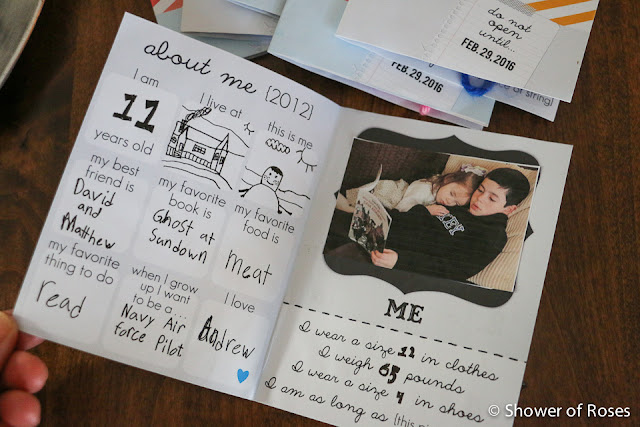 do not
open
until...
FEB. 29, 2016
do not
open
until...
FEB. 29, 2016
of string)
about me [2012]
I am
11
years old
I live at
this is me
my best
friend is
David
and
Matthew
my favorite
book is
Ghost at
Sundown
my favorite
food is
meat
my favorite
thing to do
read
when I grow
up I want
to be a...
Navy Air
force Pilot
I love
Andrew
ME
I wear a size 12 in clothes
I weigh 65 pounds
I wear a size 4 in shoes
I am as long as [this
© Shower of Roses